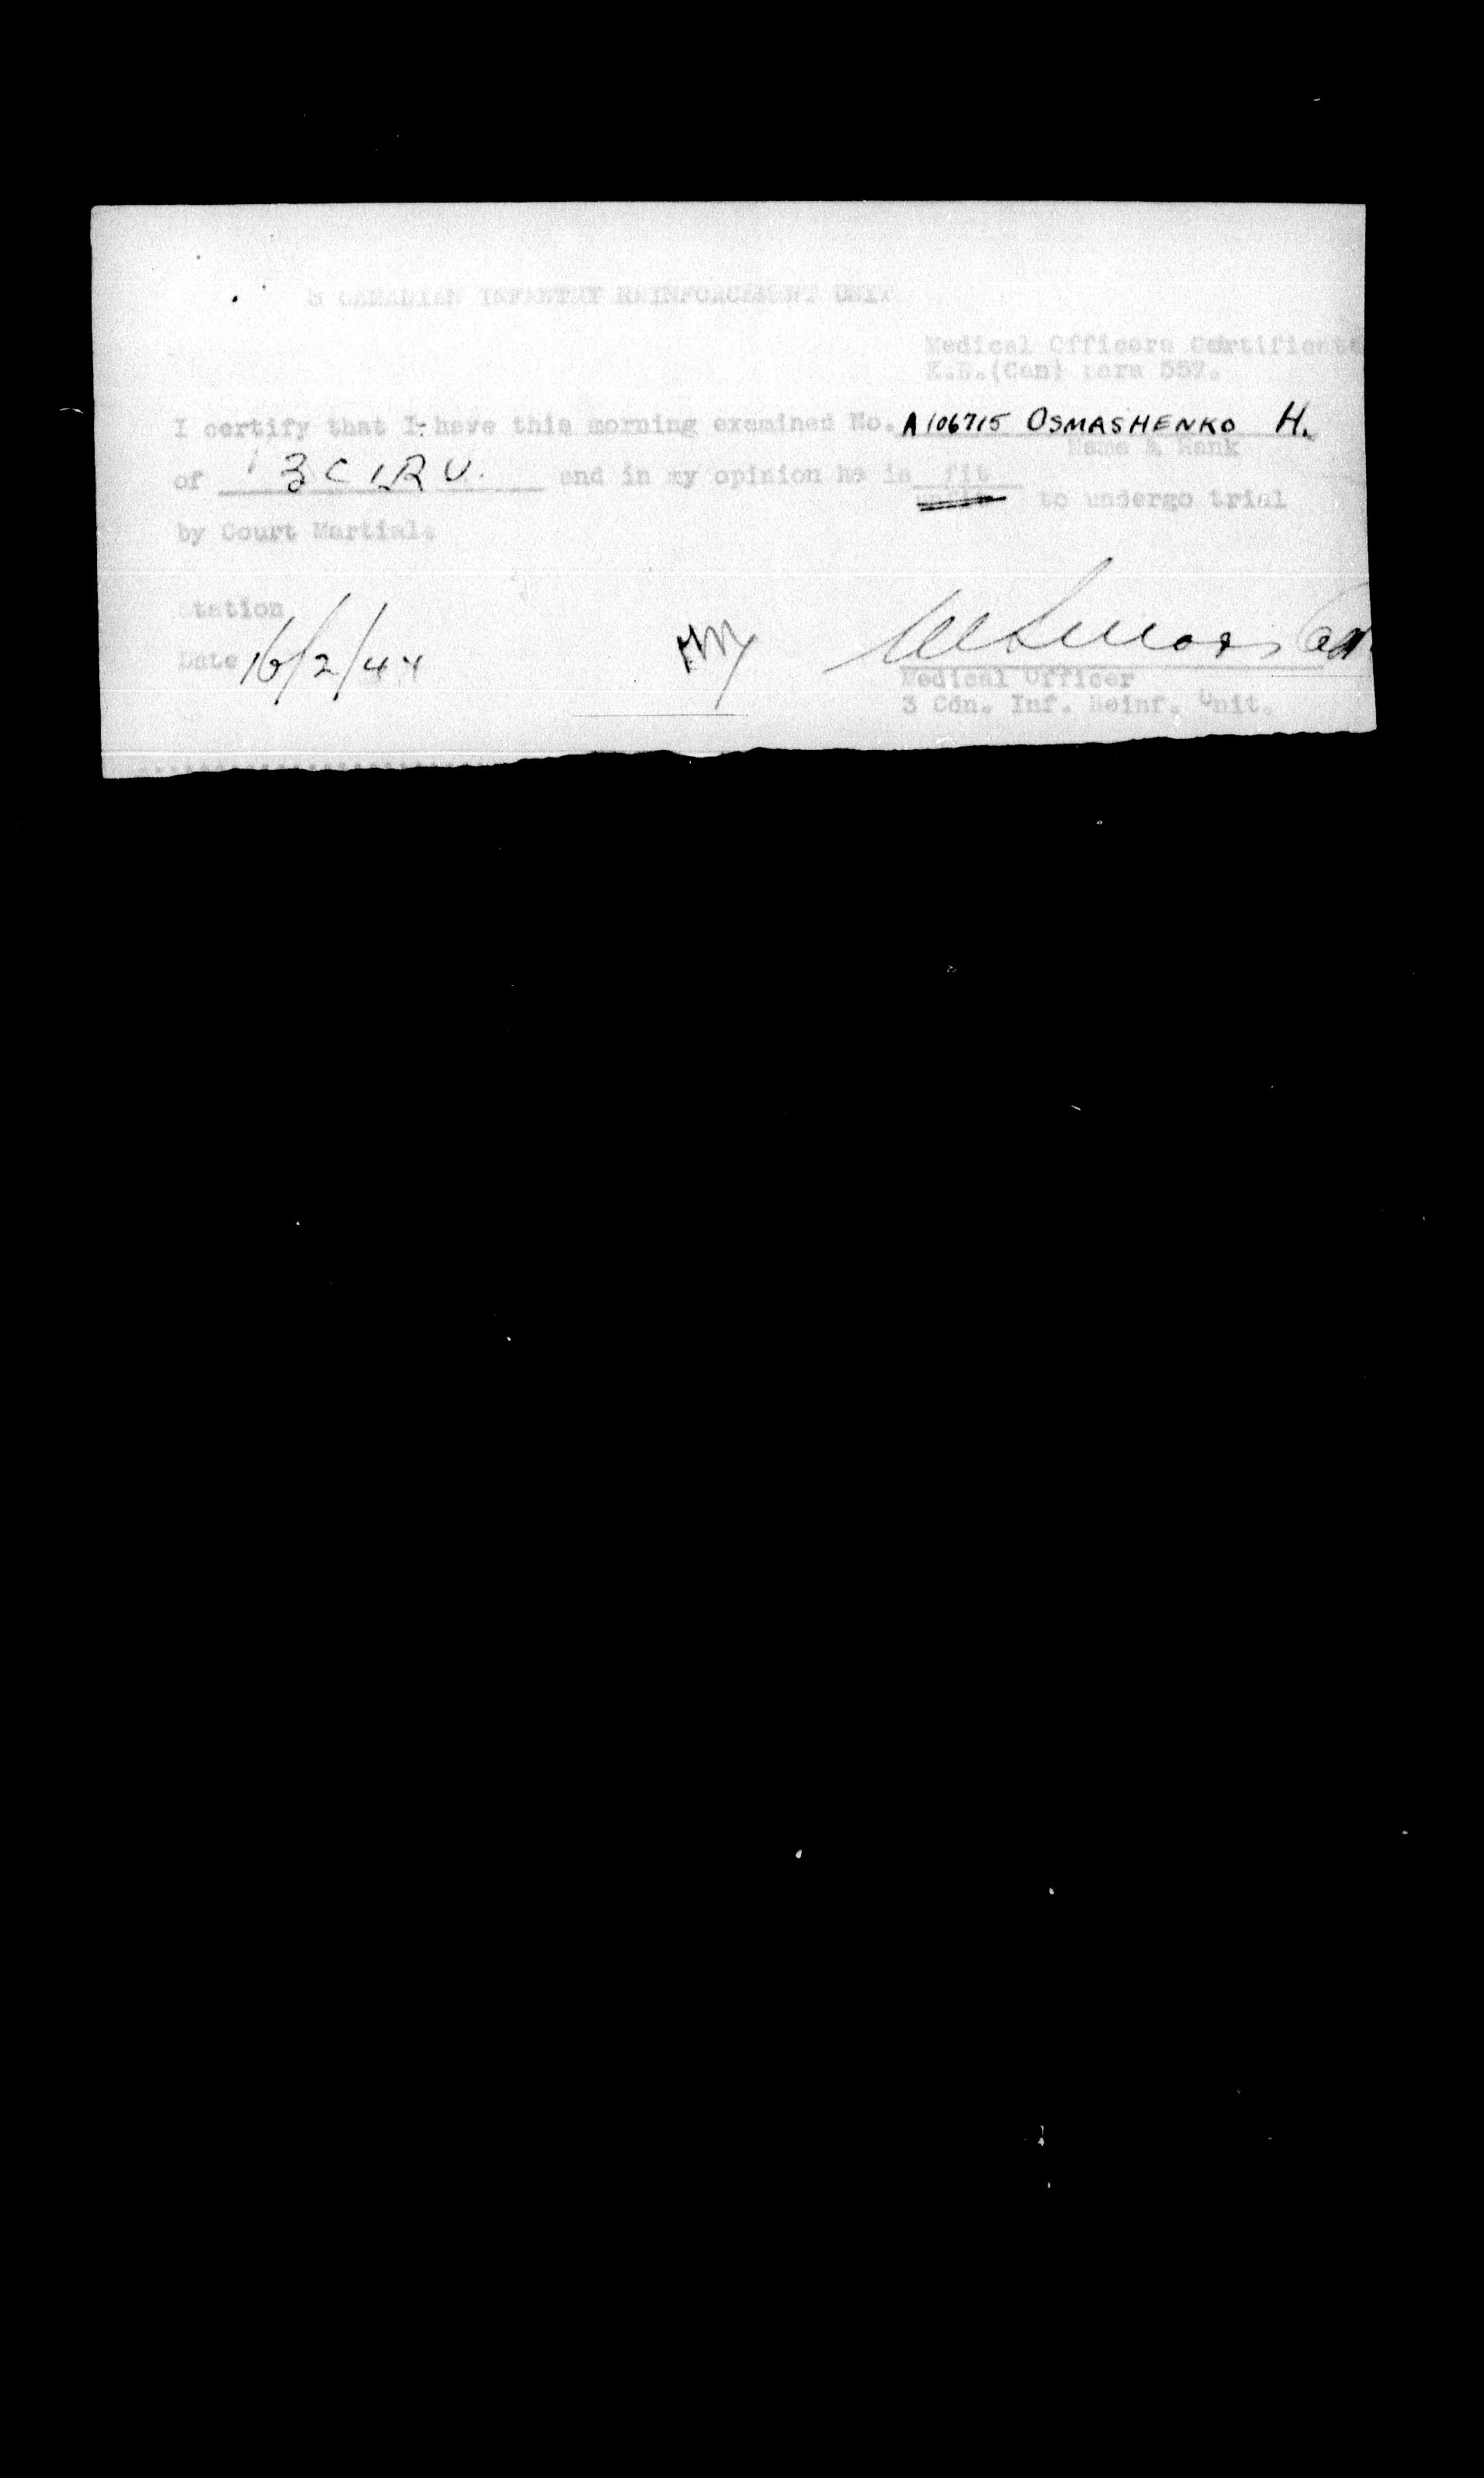 3 CANADIAN INFANTRY REINFORCEMENT UNIT
Medical Officers Certificate
K.R.(Can) para 557.
I certify that I have this morning examined No. A106715 OSMASHENKO H.
Name & Rank
of 3 C I R U. and in my opinion he is fit
unfit to undergo trial
by Court Martial.
Station
Date 16/2/44
Medical Officer
3 Cdn. Inf. Reinf. Unit.